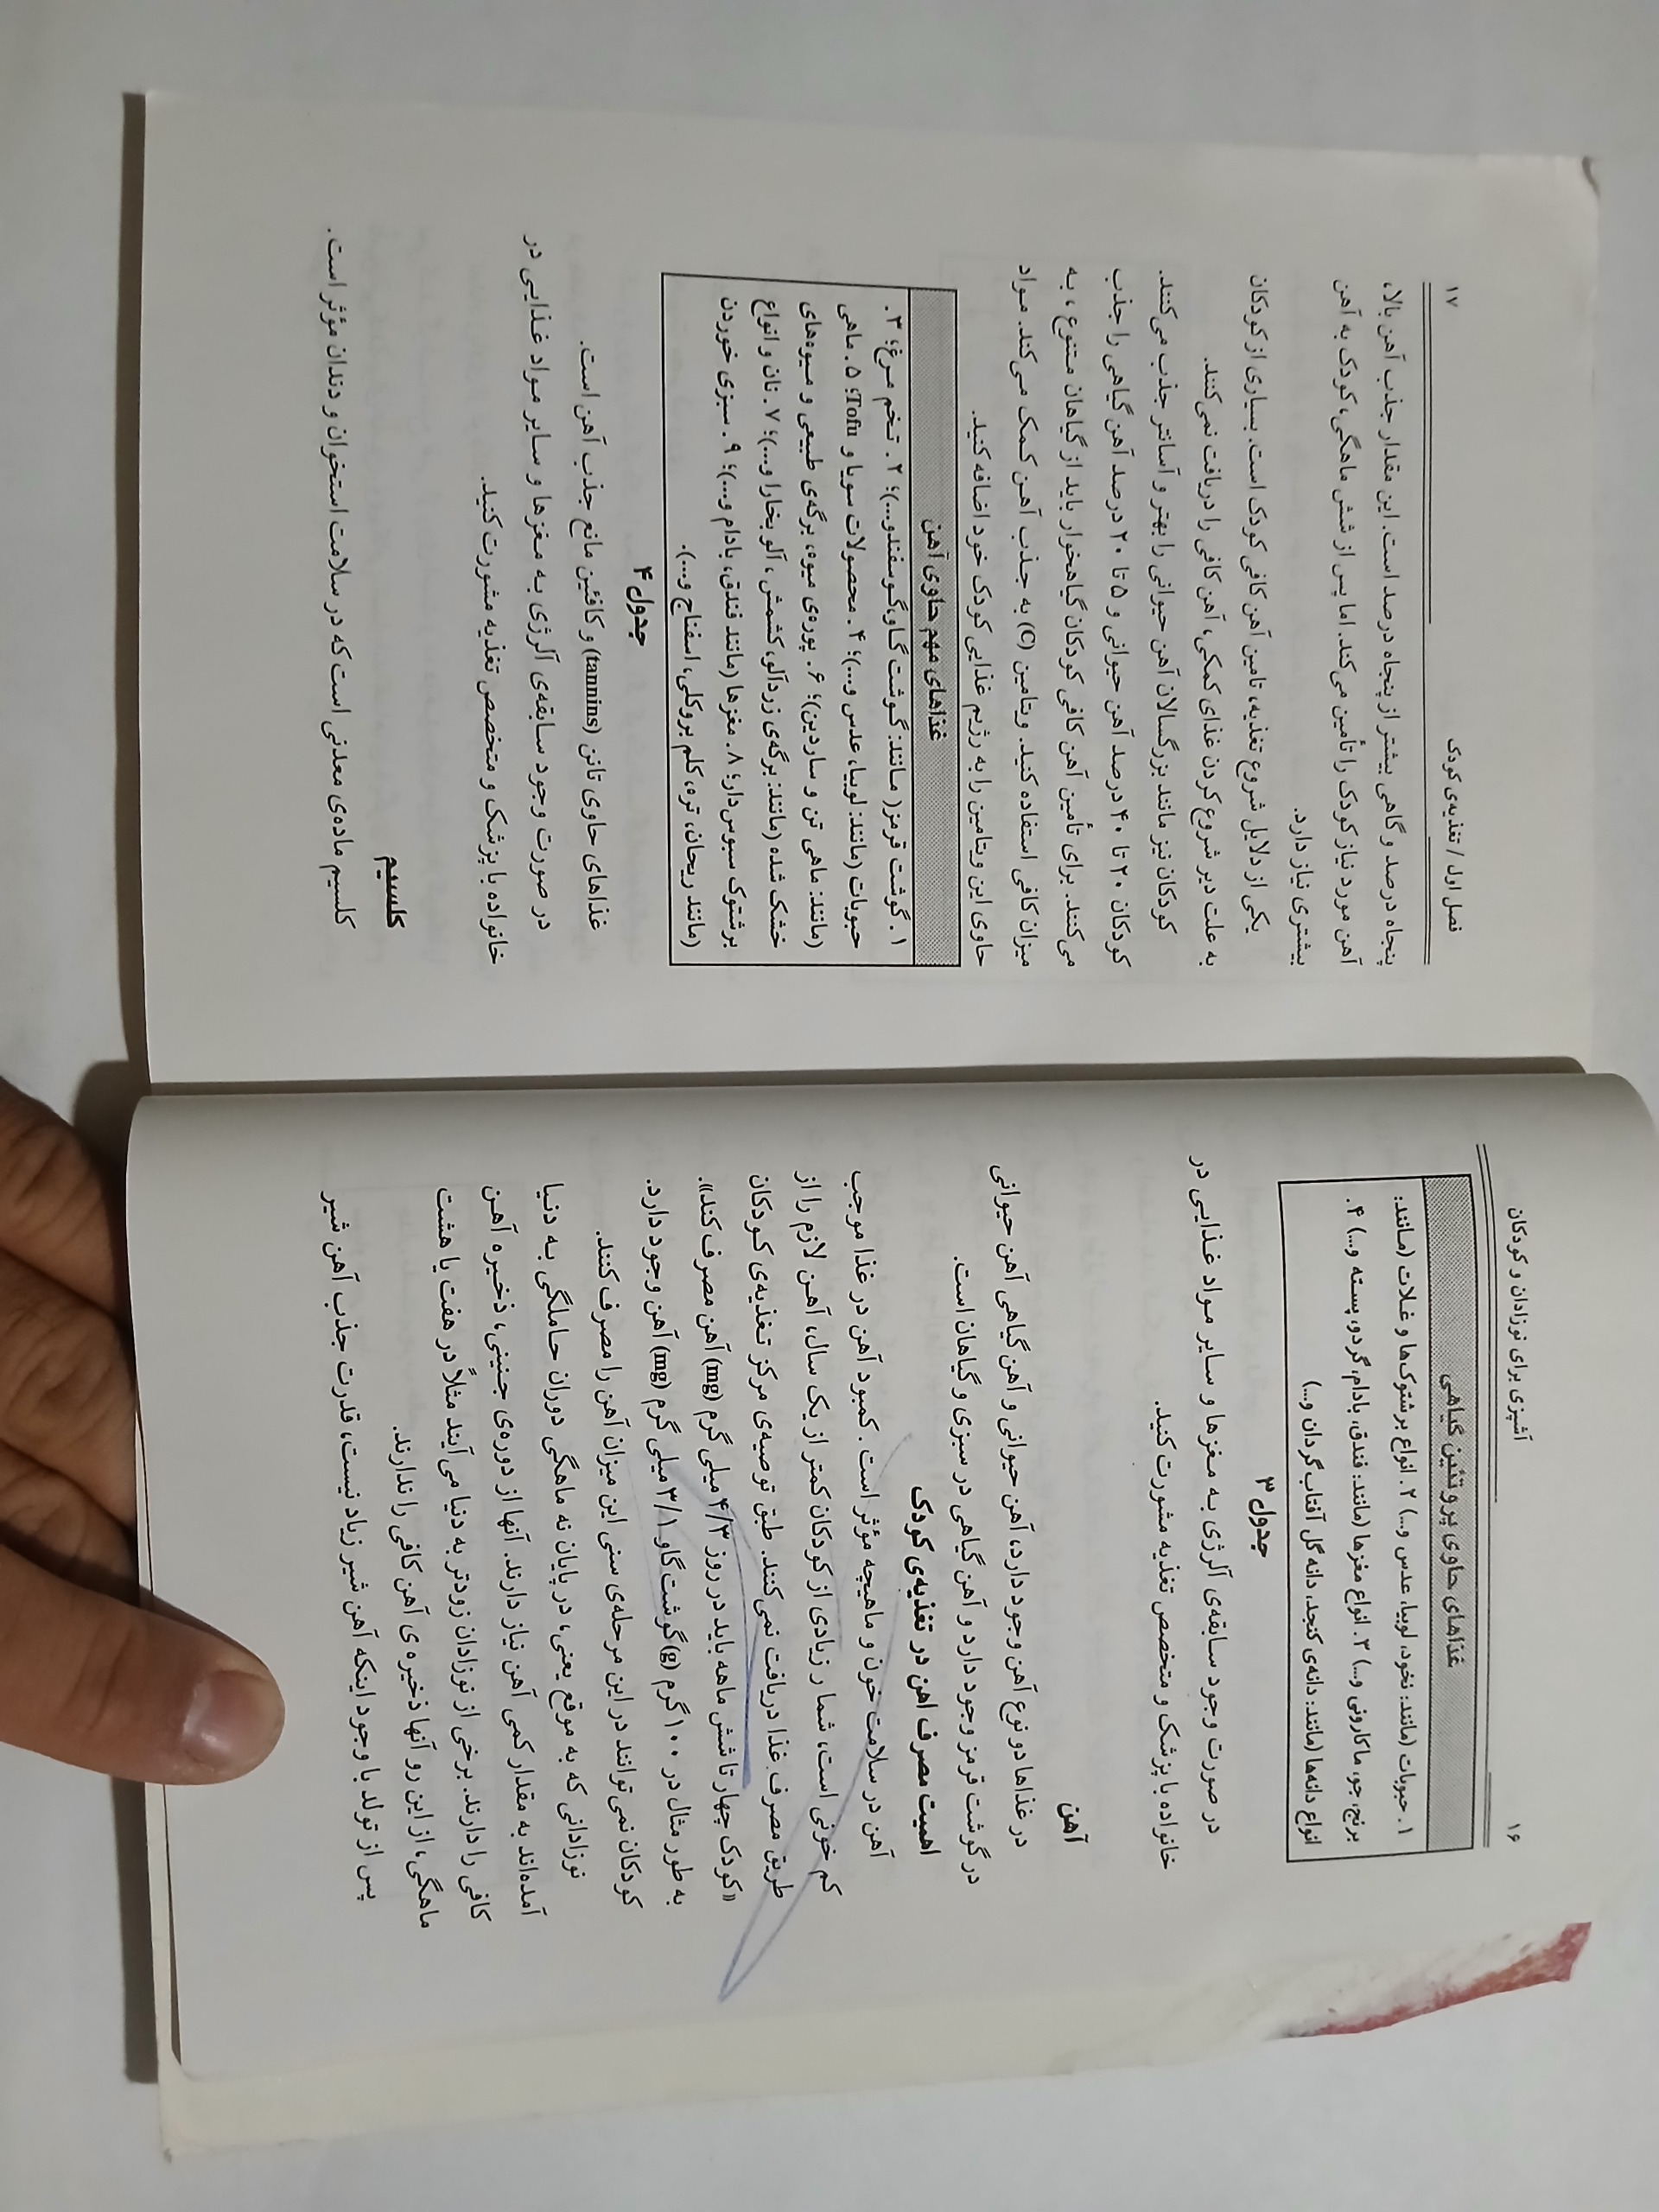 ۱۶
آشپزی برای نوزادان و کودکان
غذاهای حاوی پروتئین گیاهی
۱. حبوبات (مانند: نخود، لوبیا، عدس و...) ۲. انواع برشتوک‌ها و غلات (مانند:
برنج، جو، ماکارونی و...) ۳. انواع مغزها (مانند: فندق، بادام، گردو، پسته و...) ۴.
انواع دانه‌ها (مانند: دانه‌ی کنجد، دانه گل آفتاب گردان و...)
جدول ۳
در صورت وجود سابقه‌ی آلرژی به مغزها و سایر مواد غذایی در
خانواده با پزشک و متخصص تغذیه مشورت کنید.
آهن
در غذاها دو نوع آهن وجود دارد، آهن حیوانی و آهن گیاهی آهن حیوانی
در گوشت قرمز وجود دارد و آهن گیاهی در سبزی و گیاهان است.
اهمیت مصرف اهن در تغذیه‌ی کودک
آهن در سلامت خون و ماهیچه مؤثر است. کمبود آهن در غذا موجب
کم خونی است، شمار زیادی از کودکان کمتر از یک سال، آهن لازم را از
طریق مصرف غذا دریافت نمی‌کنند. طبق توصیه‌ی مرکز تغذیه‌ی کودکان
«کودک چهار تا شش ماهه باید در روز ۴/۳ میلی گرم (mg) آهن مصرف کند».
به طور مثال در ۱۰۰ گرم (g) گوشت گاو ۳/۱ میلی گرم (mg) آهن وجود دارد.
کودکان نمی‌توانند در این مرحله‌ی سنی این میزان آهن را مصرف کنند.
نوزادانی که به موقع یعنی، در پایان نه ماهگی دوران حاملگی به دنیا
آمده‌اند به مقدار کمی آهن نیاز دارند. آنها از دوره‌ی جنینی، ذخیره آهن
کافی را دارند. برخی از نوزادان زودتر به دنیا می‌آیند مثلاً در هفت یا هشت
ماهگی، از این رو آنها ذخیره‌ی آهن کافی را ندارند.
پس از تولد با وجود اینکه آهن شیر زیاد نیست، قدرت جذب آهن شیر
فصل اول / تغذیه‌ی کودک
۱۷
پنجاه درصد و گاهی بیشتر از پنجاه درصد است. این مقدار جذب آهن بالا،
آهن مورد نیاز کودک را تأمین می‌کند. اما پس از شش ماهگی، کودک به آهن
بیشتری نیاز دارد.
یکی از دلایل شروع تغذیه، تامین آهن کافی کودک است. بسیاری از کودکان
به علت دیر شروع کردن غذای کمکی، آهن کافی را دریافت نمی‌کنند.
کودکان نیز مانند بزرگسالان آهن حیوانی را بهتر و آسانتر جذب می‌کنند.
کودکان ۲۰ تا ۴۰ درصد آهن حیوانی و ۵ تا ۲۰ درصد آهن گیاهی را جذب
می‌کنند. برای تأمین آهن کافی کودکان گیاهخوار باید از گیاهان متنوع، به
میزان کافی استفاده کنید. ویتامین (C) به جذب آهن کمک می‌کند. مواد
حاوی این ویتامین را به رژیم غذایی کودک خود اضافه کنید.
غذاهای مهم حاوی آهن
۱. گوشت قرمز( مانند: گوشت گاو،گوسفندو...)؛ ۲. تخم مرغ؛ ۳.
حبوبات (مانند: لوبیا، عدس و...)؛ ۴. محصولات سویا و Tofu؛ ۵. ماهی
(مانند: ماهی تن و ساردین)؛ ۶. پوره‌ی میوه، برگه‌ی طبیعی و میوه‌های
خشک شده (مانند: برگه‌ی زردآلو، کشمش، آلو بخارا و...)؛ ۷. نان و انواع
برشتوک سبوس‌دار؛ ۸. مغزها (مانند فندق، بادام و...)؛ ۹. سبزی خوردن
(مانند ریحان، تره، کلم بروکلی، اسفناج و...).
جدول ۴
غذاهای حاوی تانن (tannins) و کافئین مانع جذب آهن است.
در صورت وجود سابقه‌ی آلرژی به مغزها و سایر مواد غذایی در
خانواده با پزشک و متخصص تغذیه مشورت کنید.
کلسیم
کلسیم ماده‌ی معدنی است که در سلامت استخوان و دندان مؤثر است.